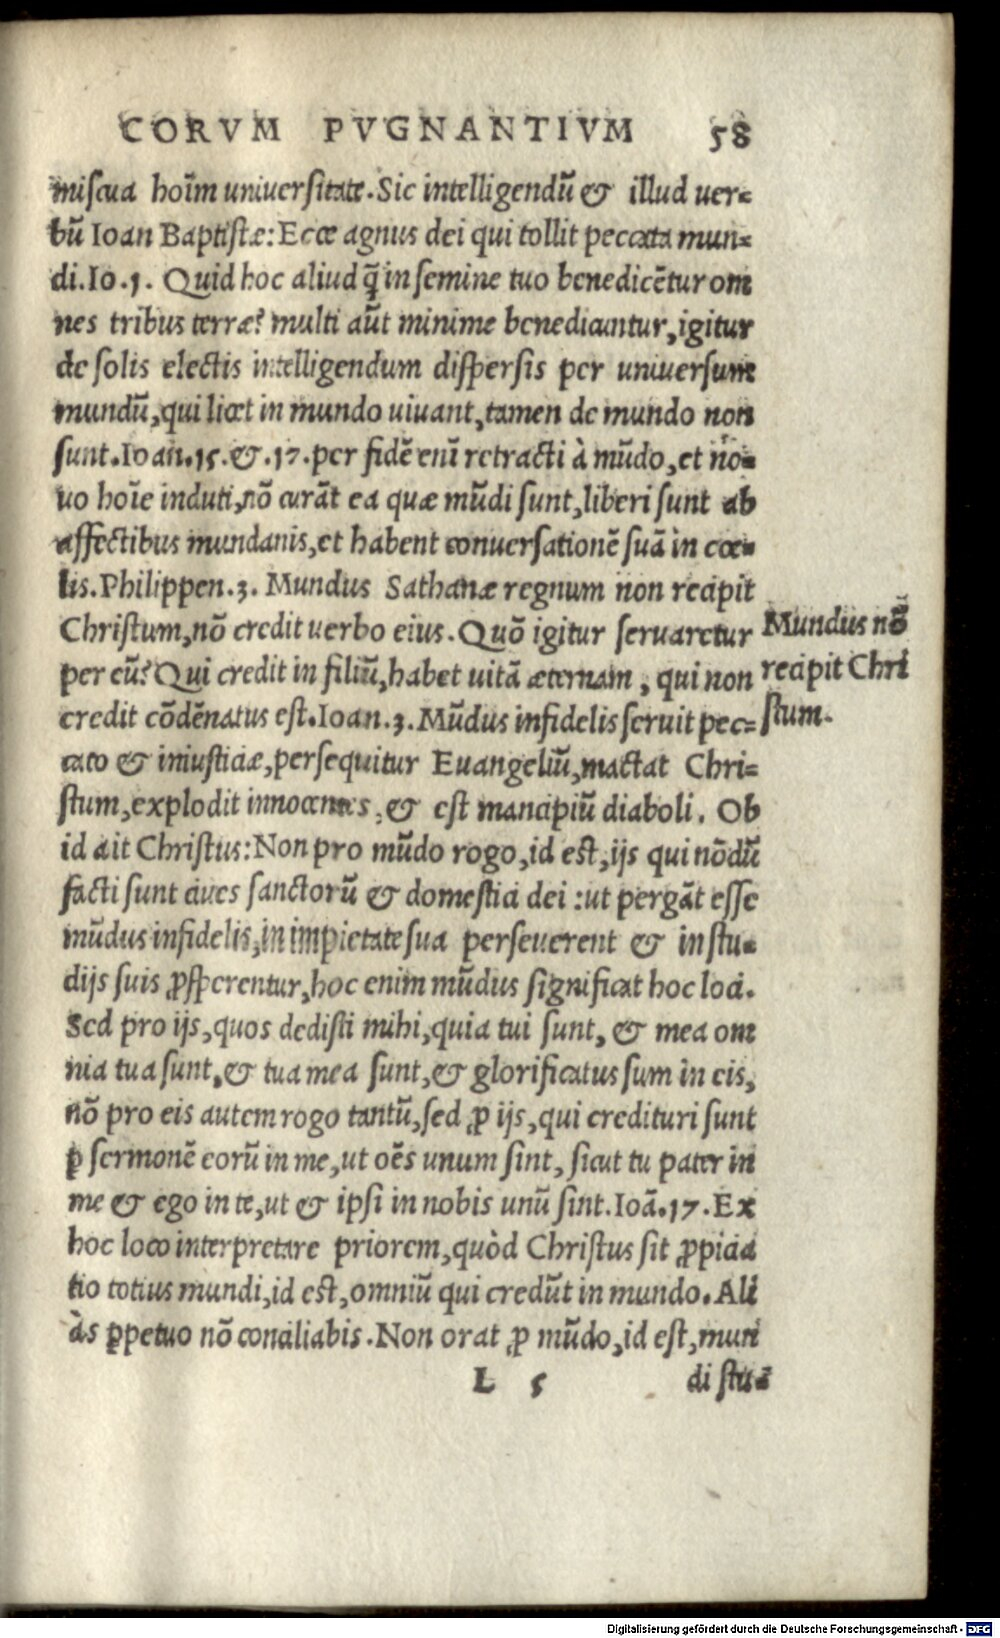 CORVM PVGNANTIVM 58
miscua hoīm uniuersitate. Sic intelligendū & illud uer-
bū Ioan Baptistæ: Ecce agnus dei qui tollit peccata mun-
di. Io. 1. Quid hoc aliud q̄ in semine tuo benedicētur om
nes tribus terræ? multi aūt minime benedicuntur, igitur
de solis electis intelligendum dispersis per uniuersum
mundū, qui licet in mundo uiuant, tamen de mundo non
sunt. Ioan. 15. &. 17. per fidē enī retracti à mūdo, et no-
uo hoīe induti, nō curāt ea quæ mūdi sunt, liberi sunt ab
affectibus mundanis, et habent conuersationē suā in cœ-
lis. Philippen. 3. Mundus Sathanæ regnum non recipit
Christum, nō credit uerbo eius. Quō igitur seruaretur
per eū? Qui credit in filiū, habet uitā æternam, qui non
credit cōdēnatus est. Ioan. 3. Mūdus infidelis seruit pec-
cato & iniusticiæ, persequitur Euangeliū, mactat Chri-
stum, explodit innocentes, & est mancipiū diaboli. Ob
id ait Christus: Non pro mūdo rogo, id est, ijs qui nōdū
facti sunt ciues sanctorū & domestici dei: ut pergāt esse
mūdus infidelis, in impietate sua perseuerent & in stu-
dijs suis ꝓsperentur, hoc enim mūdus significat hoc loci.
Sed pro ijs, quos dedisti mihi, quia tui sunt, & mea om
nia tua sunt, & tua mea sunt, & glorificatus sum in eis,
nō pro eis autem rogo tantū, sed ꝓ ijs, qui credituri sunt
ꝑ sermonē eorū in me, ut oēs unum sint, sicut tu pater in
me & ego in te, ut & ipsi in nobis unū sint. Ioā. 17. Ex
hoc loco interpretare priorem, quòd Christus sit ꝓpicia
tio totius mundi, id est, omniū qui credūt in mundo. Ali
às ꝑpetuo nō conciliabis. Non orat ꝓ mūdo, id est, mun
L 5 di stu-
Mundus nō
recipit Chri
stum.
Digitalisierung gefördert durch die Deutsche Forschungsgemeinschaft - DFG